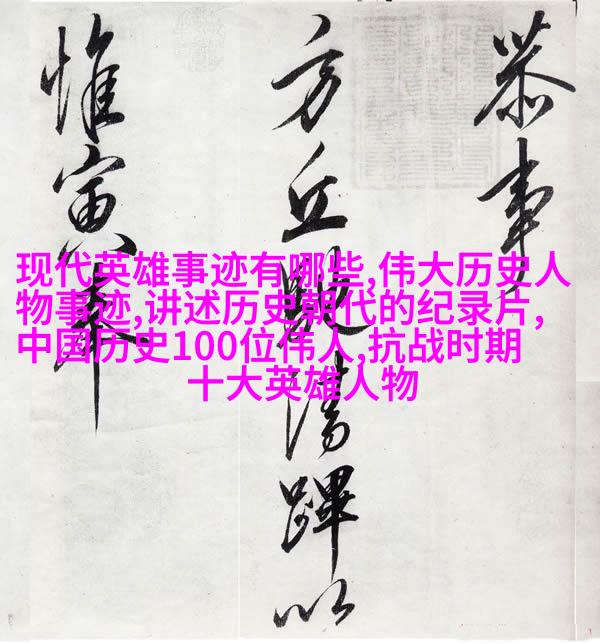 恭事
方丘清蹕以
惟寅奉
现代英雄事迹有哪些,伟大历史人
物事迹,讲述历史朝代的纪录片,
中国历史100位伟人,抗战时期
十大英雄人物